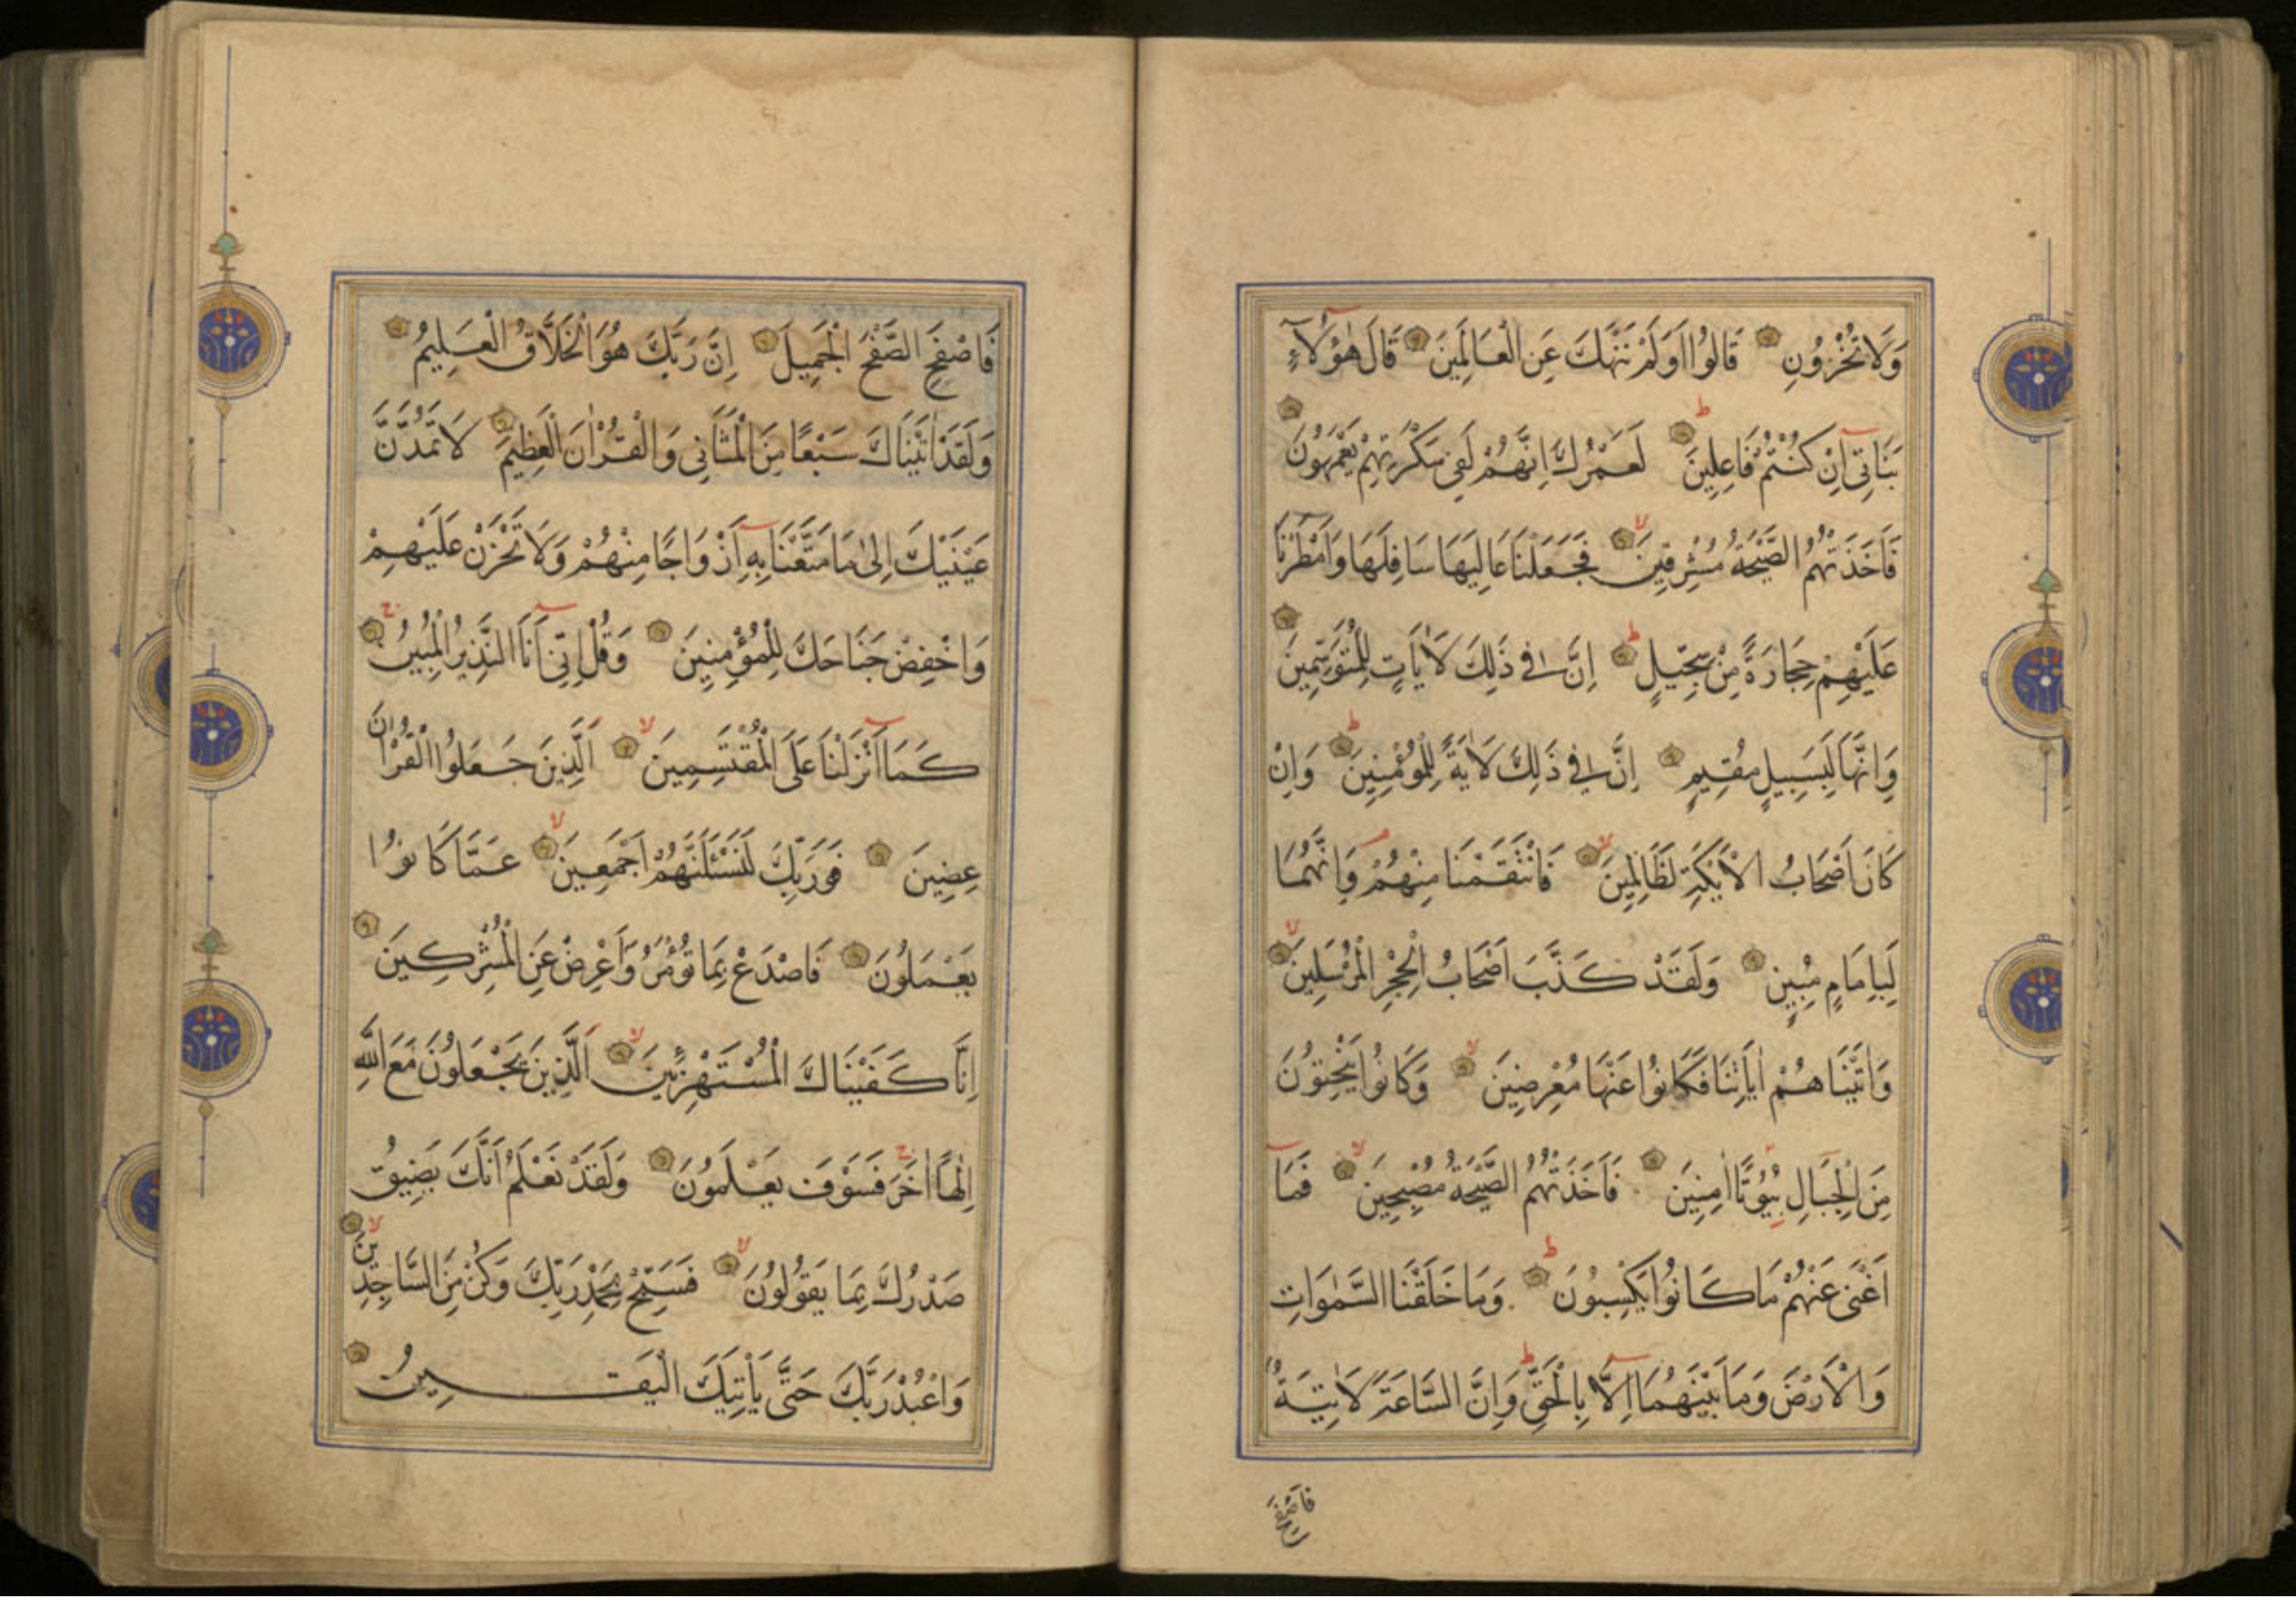 وَلَا تُخْزُونِ قَالُوا اَوَلَمْ نَنْهَكَ عَنِ الْعَالَمِينَ قَالَ هٰٓؤُلَآءِ
بَنَاتِىٓ اِنْ كُنْتُمْ فَاعِلِينَ ط لَعَمْرُكَ اِنَّهُمْ لَفِى سَكْرَتِهِمْ يَعْمَهُونَ
فَاَخَذَتْهُمُ الصَّيْحَةُ مُشْرِقِينَ لا فَجَعَلْنَا عَالِيَهَا سَافِلَهَا وَاَمْطَرْنَا
عَلَيْهِمْ حِجَارَةً مِنْ سِجِّيلٍ ط اِنَّ فِى ذَلِكَ لَاٰيَاتٍ لِلْمُتَوَسِّمِينَ
وَاِنَّهَا لَبِسَبِيلٍ مُقِيمٍ اِنَّ فِى ذَلِكَ لَاٰيَةً لِلْمُؤْمِنِينَ ط وَاِنْ
كَانَ اَصْحَابُ الْاَيْكَةِ لَظَالِمِينَ لا فَانْتَقَمْنَا مِنْهُمْ م وَاِنَّهُمَا
لَبِاِمَامٍ مُبِينٍ وَلَقَدْ كَذَّبَ اَصْحَابُ الْحِجْرِ الْمُرْسَلِينَ لا
وَاٰتَيْنَاهُمْ اٰيَاتِنَا فَكَانُوا عَنْهَا مُعْرِضِينَ لا وَكَانُوا يَنْحِتُونَ
مِنَ الْجِبَالِ بُيُوتًا اٰمِنِينَ فَاَخَذَتْهُمُ الصَّيْحَةُ مُصْبِحِينَ لا فَمَآ
اَغْنٰى عَنْهُمْ مَا كَانُوا يَكْسِبُونَ ط وَمَا خَلَقْنَا السَّمٰوَاتِ
وَالْاَرْضَ وَمَا بَيْنَهُمَآ اِلَّا بِالْحَقِّ ط وَاِنَّ السَّاعَةَ لَاٰتِيَةٌ
فَاصْفَحِ
فَاصْفَحِ الصَّفْحَ الْجَمِيلَ اِنَّ رَبَّكَ هُوَ الْخَلَّاقُ الْعَلِيمُ
وَلَقَدْ اٰتَيْنَاكَ سَبْعًا مِنَ الْمَثَانِى وَالْقُرْاٰنَ الْعَظِيمَ لَا تَمُدَّنَّ
عَيْنَيْكَ اِلٰى مَا مَتَّعْنَا بِهِٓ اَزْوَاجًا مِنْهُمْ وَلَا تَحْزَنْ عَلَيْهِمْ
وَاخْفِضْ جَنَاحَكَ لِلْمُؤْمِنِينَ وَقُلْ اِنِّىٓ اَنَا النَّذِيرُ الْمُبِينُ ج
كَمَآ اَنْزَلْنَا عَلَى الْمُقْتَسِمِينَ لا اَلَّذِينَ جَعَلُوا الْقُرْاٰنَ
عِضِينَ فَوَرَبِّكَ لَنَسْـَٔلَنَّهُمْ اَجْمَعِينَ لا عَمَّا كَانُوا
يَعْمَلُونَ فَاصْدَعْ بِمَا تُؤْمَرُ وَاَعْرِضْ عَنِ الْمُشْرِكِينَ
اِنَّا كَفَيْنَاكَ الْمُسْتَهْزِئِينَ لا اَلَّذِينَ يَجْعَلُونَ مَعَ اللّٰهِ
اِلٰهًا اٰخَرَ ج فَسَوْفَ يَعْلَمُونَ وَلَقَدْ نَعْلَمُ اَنَّكَ يَضِيقُ
صَدْرُكَ بِمَا يَقُولُونَ لا فَسَبِّحْ بِحَمْدِ رَبِّكَ وَكُنْ مِنَ السَّاجِدِينَ لا
وَاعْبُدْ رَبَّكَ حَتَّى يَاْتِيَكَ الْيَقِينُ